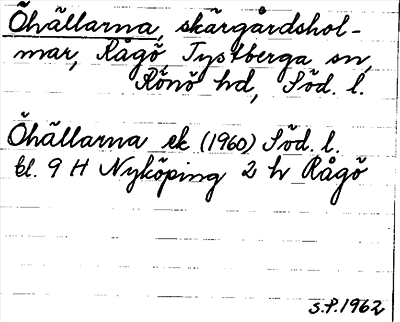 Öhällarna, skärgårdshol-
mar, Rågö Tystberga sn,
Rönö hd, Söd. l.
Öhällarna ek (1960) Söd. l.
bl. 9 H Nyköping 2 h Rågö
S.P. 1962